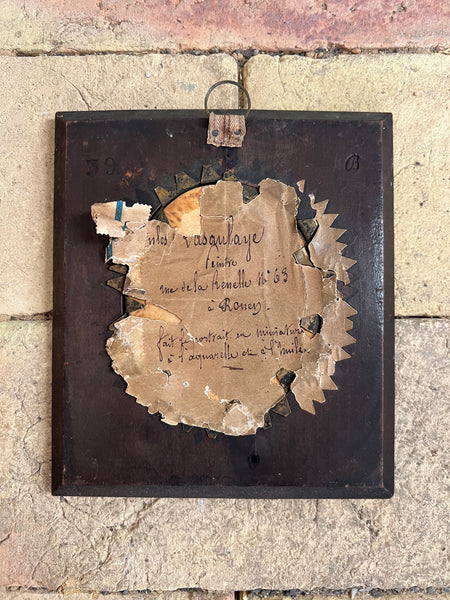 39 B
ules Vasqulaye
Peintre
rue de la Renelle No 63
à Rouen.
fait le portrait en miniature
à l'aquarelle et à l'huile.